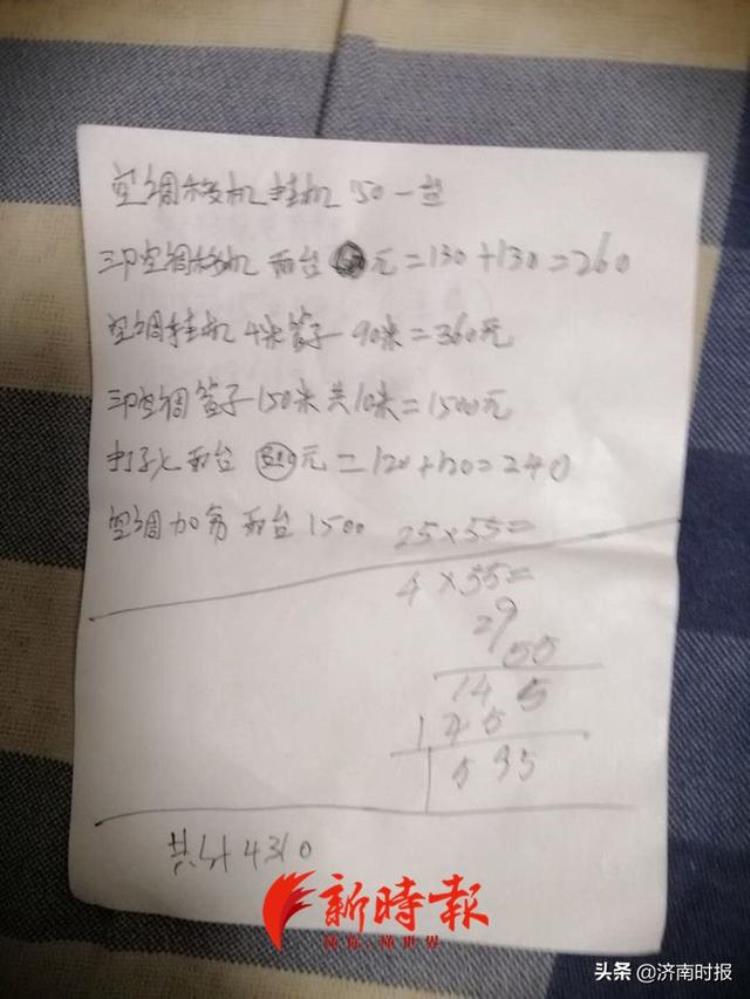 空调移机挂机 150一台
三P空调移机 两台 元=130+130=260
空调挂机 4米管子 90米=360元
三P空调管子 150米共10米=1500元
打孔 两台 元=120+120=240
空调加氟 两台 1500
25×55=
4×55=
29
55
14 5
1 4 5
5 95
共计4310
新時報
懂你,懂世界
头条 @济南时报